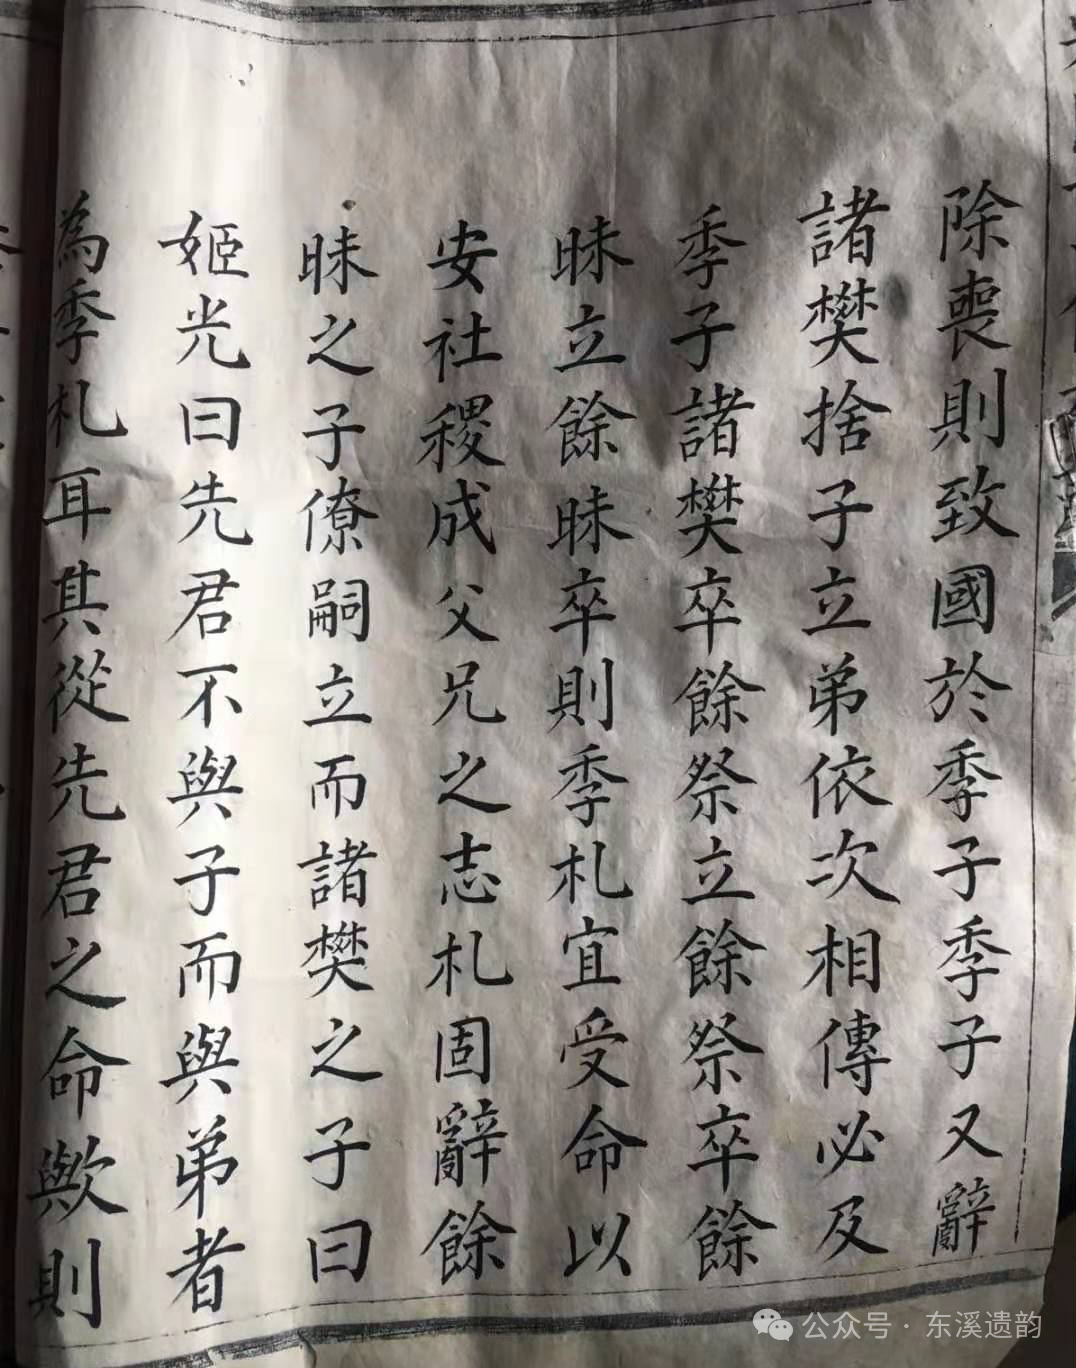 除喪則致國於季子季子又辭
諸樊捨子立弟依次相傳必及
季子諸樊卒餘祭立餘祭卒餘
昧立餘昧卒則季札宜受命以
安社稷成父兄之志札固辭餘
昧之子僚嗣立而諸樊之子曰
姬光曰先君不與子而與弟者
為季札耳其從先君之命歟則
公众号·东溪遗韵